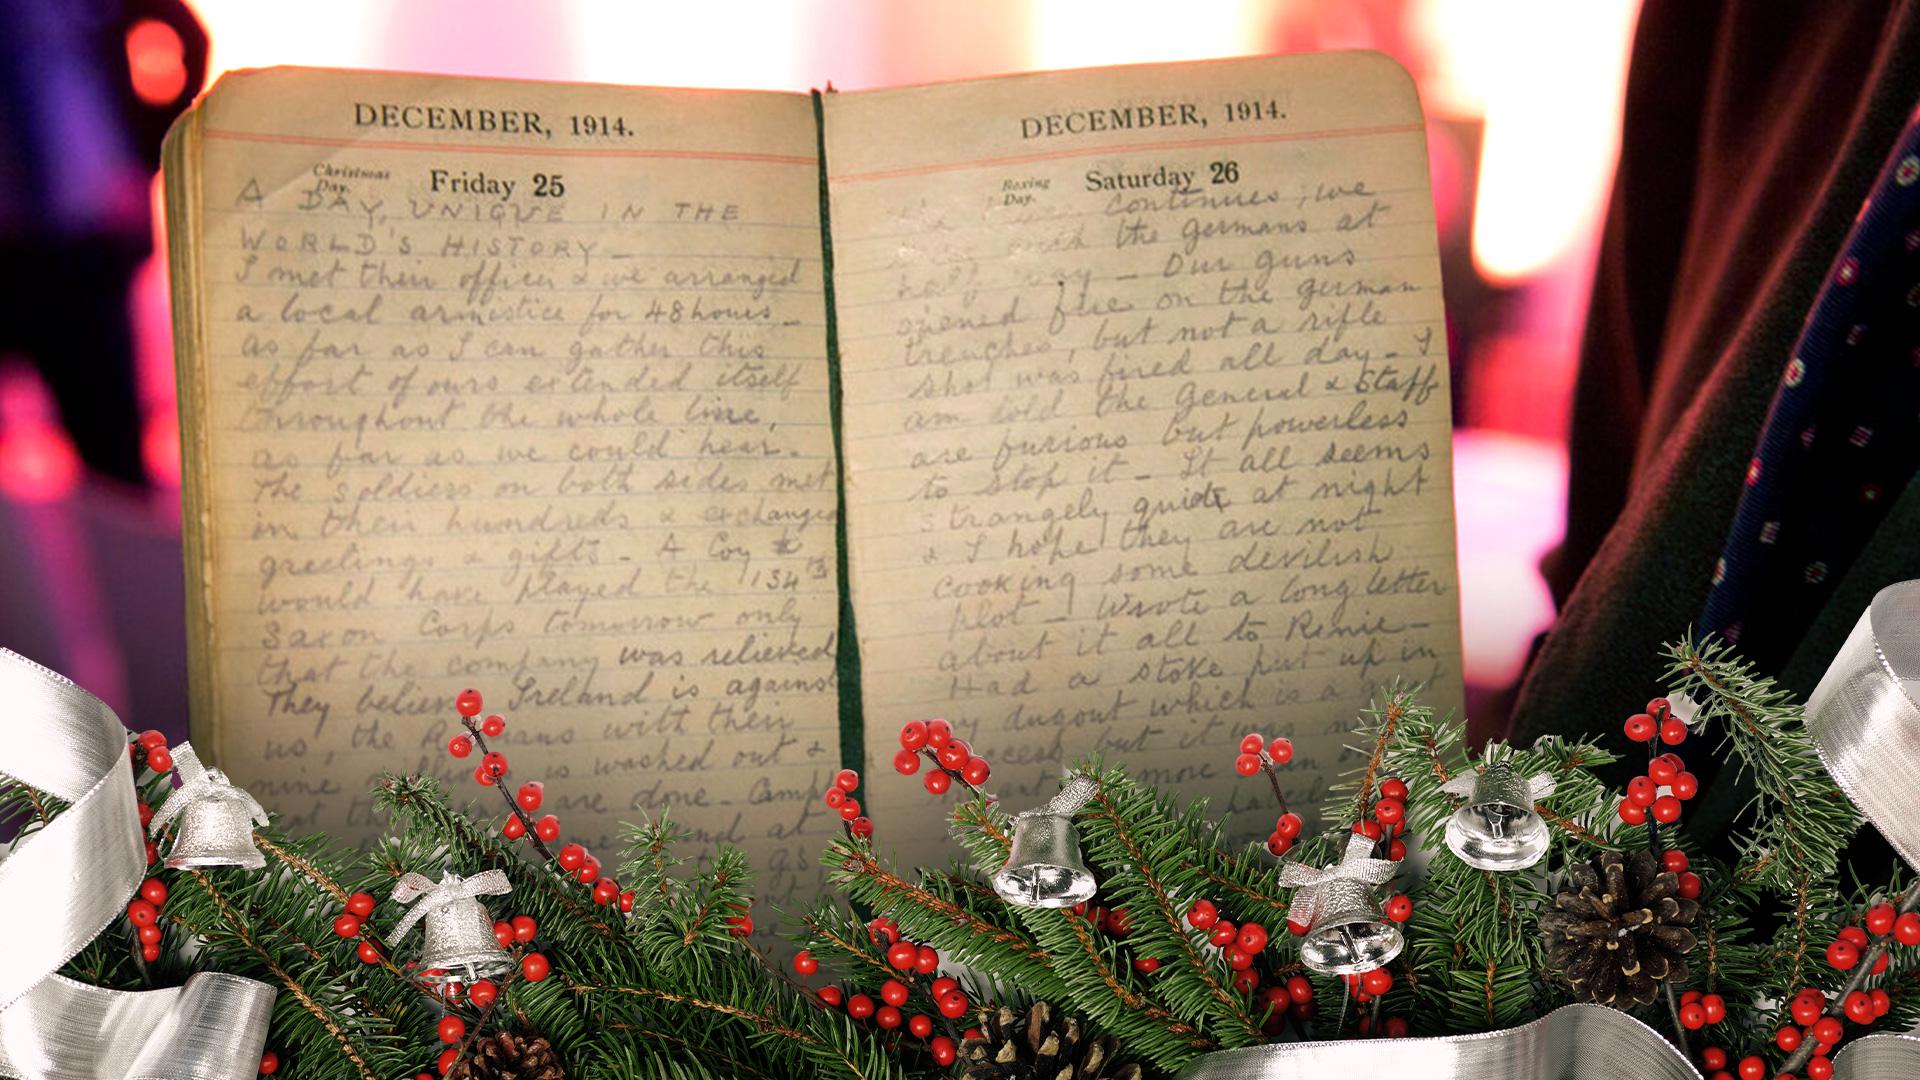 DECEMBER, 1914.
Christmas Day. Friday 25
A DAY, UNIQUE IN THE
WORLD'S HISTORY_
I met their officer & we arranged
a local armistice for 48 hours_
as far as I can gather this
effort of ours extended itself
throughout the whole line,
as far as we could hear.
The soldiers on both sides met
in their hundreds & exchanged
greetings & gifts - A Coy
would have played the 134th
Saxon Corps tomorrow only
that the company was relieved
They believe Ireland is against
us, the with their
nine is washed out &
at are done - Camp
at
DECEMBER, 1914.
Boxing Day. Saturday 26
continues; we
the germans at
half way - Our guns
opened fire on the german
trenches, but not a rifle
shot was fired all day - I
am told the General & Staff
are furious but powerless
to stop it - It all seems
strangely quiet at night
& I hope they are not
cooking some devilish
plot - Wrote a long letter
about it all to Renie -
Had a stoke put up in
my dugout which is a
but it was
more